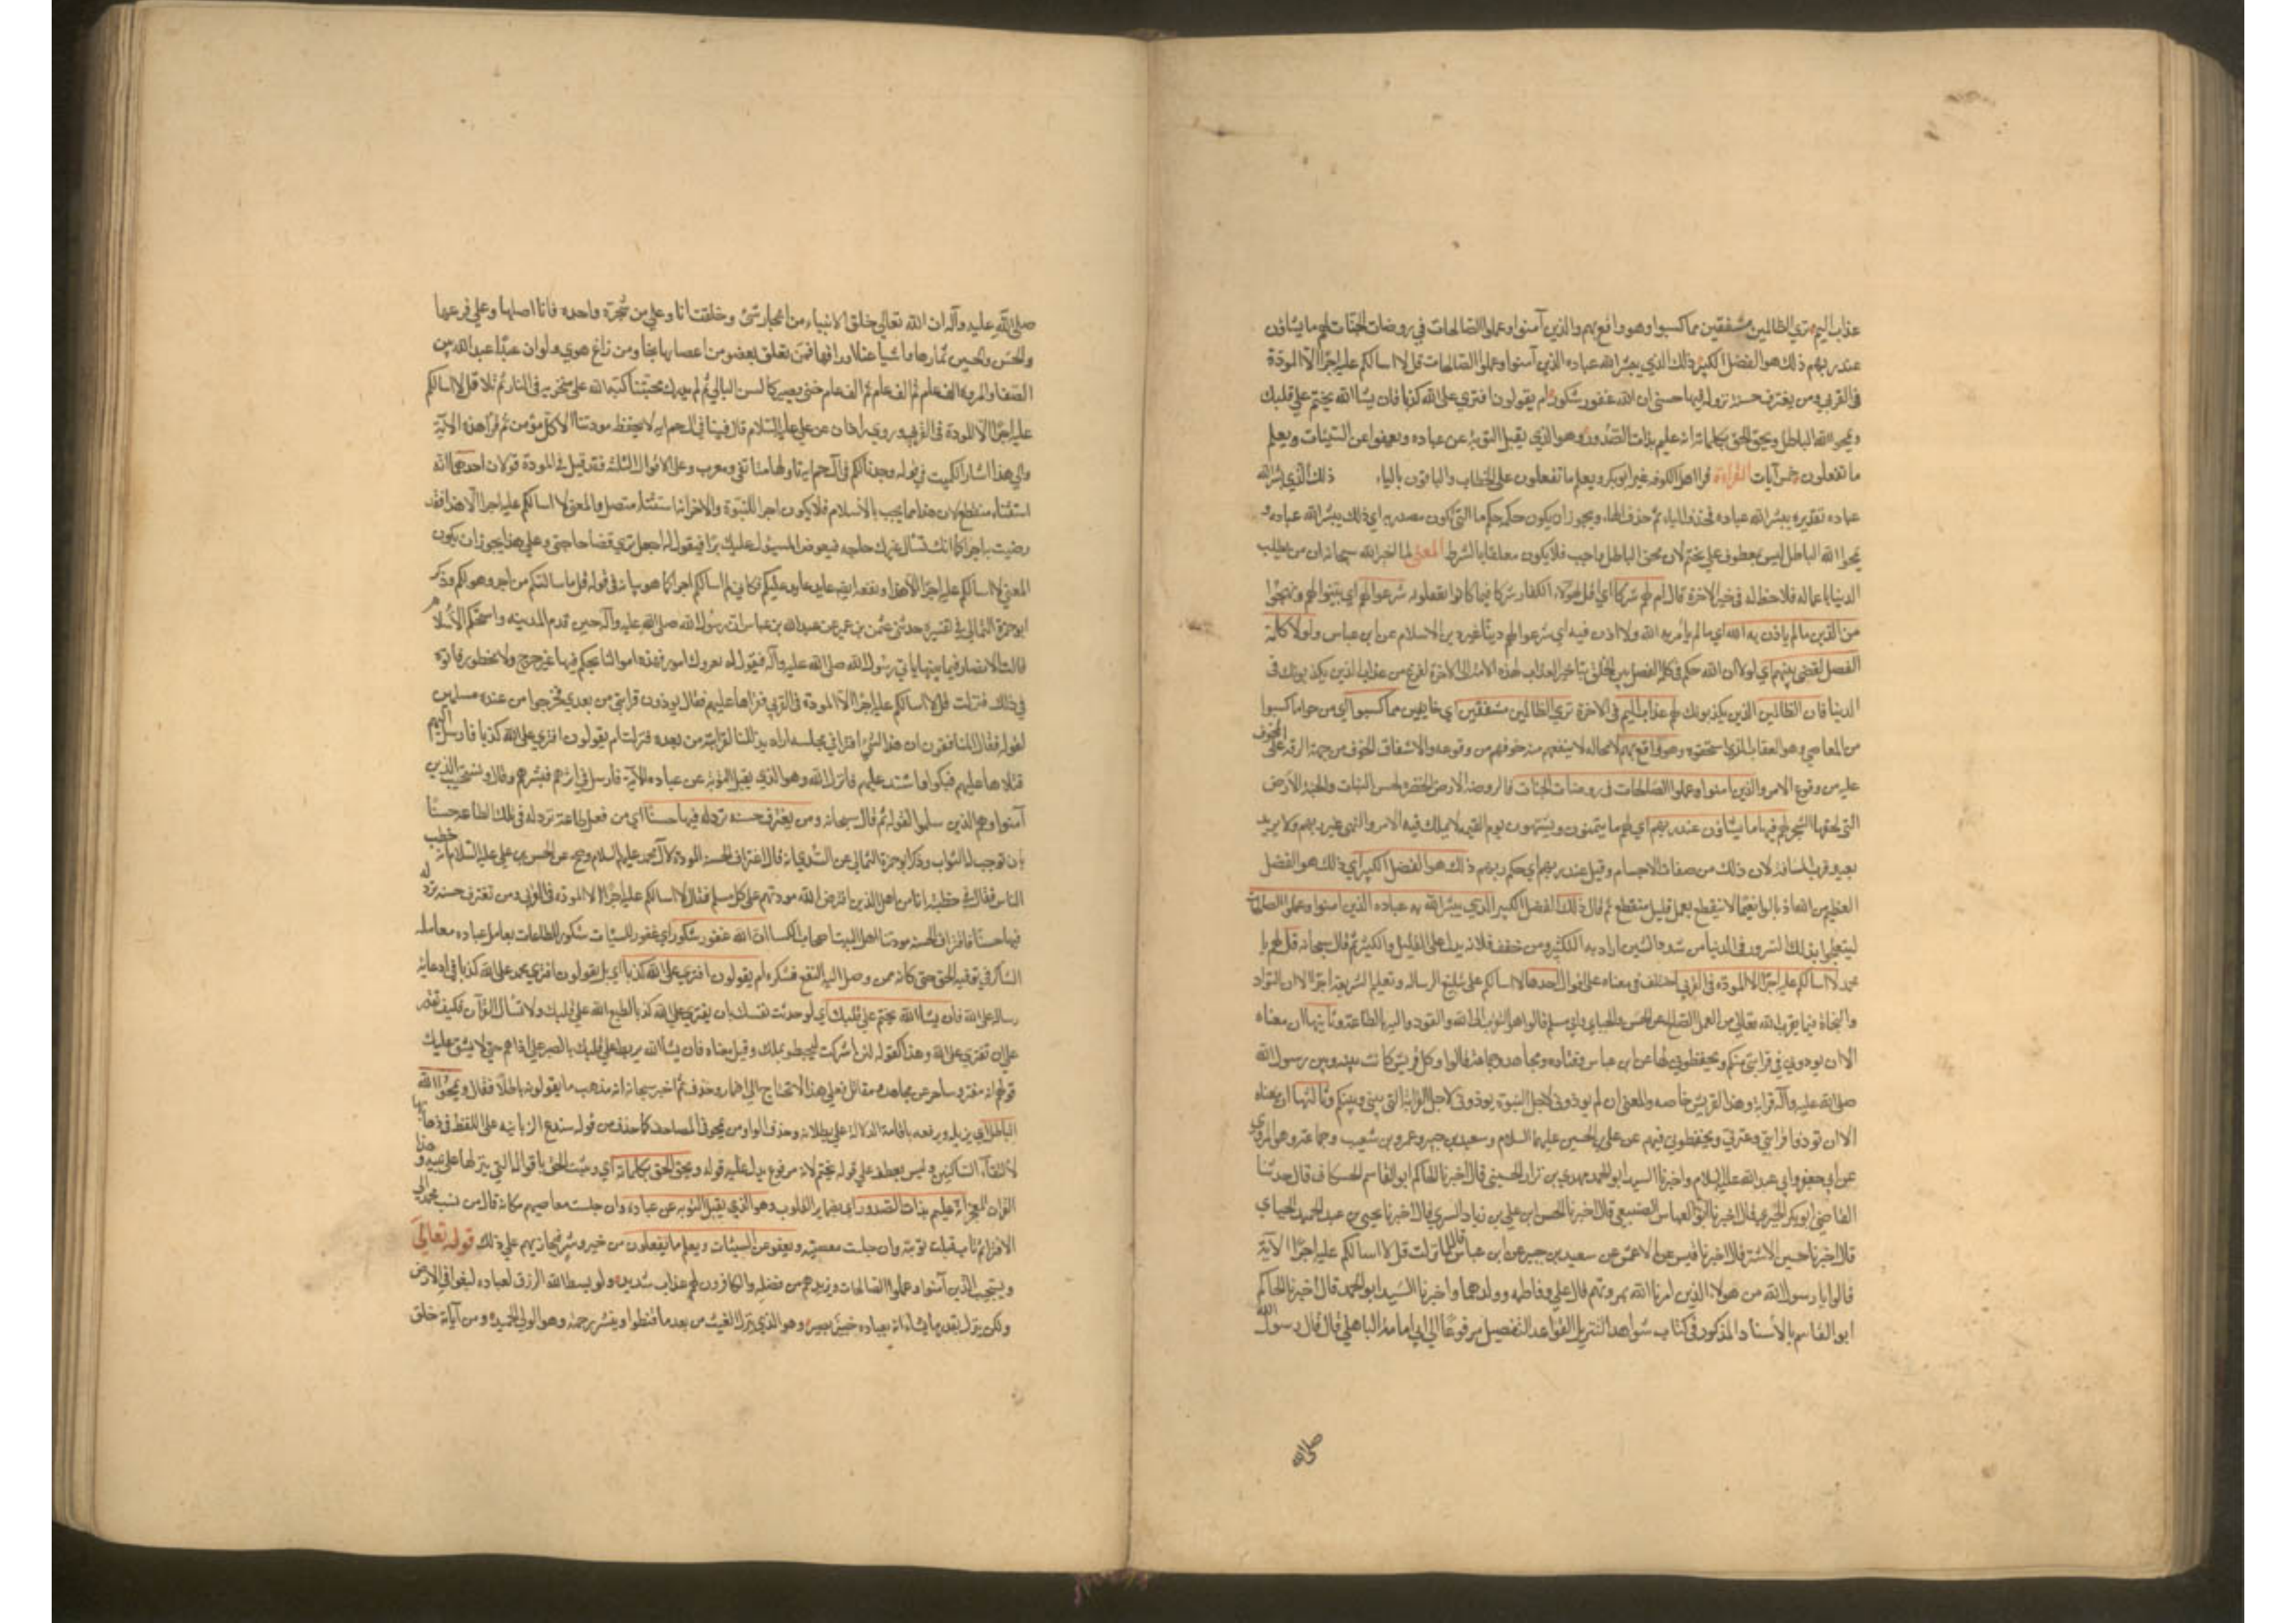 عذاب اليم ترى الظالمين مشفقين مما كسبوا وهو واقع بهم والذين آمنوا وعملوا الصالحات في روضات الجنات لهم ما يشاؤن
عند ربهم ذلك هو الفضل الكبير ذلك الذي يبشر الله عباده الذين آمنوا وعملوا الصالحات قل لا اسالكم عليه اجرا الا المودة
في القربى ومن يقترف حسنة نزد له فيها حسنا ان الله غفور شكور ام يقولون افترى على الله كذبا فان يشا الله يختم على قلبك
ويمح الله الباطل ويحق الحق بكلماته انه عليم بذات الصدور وهو الذي يقبل التوبة عن عباده ويعفوا عن السيئات ويعلم
ما تفعلون خمس آيات القراءة قرا اهل الكوفه غير ابوبكر ويعلم ما تفعلون على الخطاب والباقون بالياء ذلك الذي يبشر الله
عباده تقديره يبشر الله عباده فحذف الباء ثم حذف الهاء ويجوز ان يكون حكمه حكم ما التي تكون مصدريه اي ذلك يبشر الله عباده و
يمحوا الله الباطل ليس بمعطوف على يختم لان محق الباطل واجب فلا يكون معلقا بالشرط المعنى لما اخبر الله سبحانه ان من يطلب
الدنيا باعماله فلا حظ له في خير الاخرة قال ام لهم شركا اي بل لهؤلاء الكفار شركا فيما كانوا يفعلونه شرعوا لهم اي بينوا لهم ونهجوا
من الدين ما لم ياذن به الله اي ما لم يامر به الله ولا اذن فيه اي شرعوا لهم دينا غير دين الاسلام عن ابن عباس ولولا كلمة
الفصل لقضى بينهم اي لولا ان الله حكم في كلمه الفصل بين الخلق بتاخير العذاب لهذه الامة الى الاخرة لفرغ من عذاب الذين يكذبونك في
الدنيا فان الظالمين الذين يكذبونك لهم عذاب اليم في الاخرة ترى الظالمين مشفقين اي خايفين مما كسبوا اي من جزا ما كسبوا
من المعاصي وهو العقاب الذي استحقوه وهو واقع بهم لا محاله لا ينفعهم منه خوفهم من وقوعه والاشفاق الخوف من جهة الرقه على المخوف
عليه من وقوع الامر والذين امنوا وعملوا الصالحات في روضات الجنات فالروضة الارض الخضرة بحسن النبات والجنة الارض
التي تحفها الشجر لهم فيها ما يشاؤن عند ربهم اي لهم ما يتمنون ويشتهون يوم القيمه لا يملك فيه الامر والنهي غير ربهم ولا يريد
بعد وقرب المسافة لان ذلك من صفات الاجسام وقيل عند ربهم اي حكم ربهم ذلك هو الفضل الكبير اي ذلك هو الفضل
العظيم من الله اذ نالوا نعيما لا ينقطع بعمل قليل منقطع ثم قال ذلك الفضل الكبير الذي يبشر الله به عباده الذين امنوا وعملوا الصالحات
ليتعجلوا بذلك السرور في الدنيا من شدد الشين اراد به التكثير ومن خفف فلانه يدل على القليل والكثير ثم قال سبحانه قل لهم يا
محمد لا اسالكم عليه اجرا الا المودة في القربى اختلف في معناه على اقوال احدها لا اسالكم على تبليغ الرسالة وتعليم الشريعة اجرا الا ان التواد
والتحاة فيما يقرب الى الله تعالى من العمل الصالح عن الحسن والجبائي وابي مسلم قالوا هو التقرب الى الله والتودد اليه بالطاعة وثانيها ان معناه
الا ان تودوني في قرابتي منكم وتحفظوني لها عن ابن عباس وقتاده ومجاهد وجماعة قالوا وكل قريش كانت بينه وبين رسول الله
صلى الله عليه وآله قرابة وهذا لقريش خاصه والمعنى ان لم تودوني لاجل النبوة تودوني لاجل القرابة التي بيني وبينكم وثالثها ان معناه
الا ان تودوا قرابتي وعترتي وتحفظوني فيهم عن علي بن الحسين عليهما السلام وسعيد بن جبير وعمرو بن شعيب وجماعة وهو المروي
عن ابي جعفر وابي عبد الله عليهما السلام واخبرنا السيد ابو الحمد مهدي بن نزار الحسيني قال اخبرنا الحاكم ابو القاسم الحسكاني قال حدثنا
القاضي ابو بكر الحيري قال اخبرنا ابو العباس الضبعي قال اخبرنا الحسن بن علي بن زياد السري قال اخبرنا يحيى بن عبد الحميد الحماني
قال اخبرنا حسين الاشقر قال اخبرنا قيس عن الاعمش عن سعيد بن جبير عن ابن عباس قال لما نزلت قل لا اسالكم عليه اجرا الآية
قالوا يا رسول الله من هؤلاء الذين امرنا الله بمودتهم قال علي وفاطمه وولدهما واخبرنا السيد ابو الحمد قال اخبرنا الحاكم
ابو القاسم بالاسناد المذكور في كتاب شواهد التنزيل لقواعد التفضيل مرفوعا الى ابي امامة الباهلي قال قال رسول الله
صلى الله
صلى الله عليه وآله ان الله تعالى خلق الانبياء من اشجار شتى وخلقت انا وعلي من شجرة واحده فانا اصلها وعلي فرعها
والحسن والحسين ثمارها واشياعنا اوراقها فمن تعلق بغصن من اغصانها نجا ومن زاغ هوى ولو ان عبدا عبد الله بين
الصفا والمروة الف عام ثم الف عام ثم الف عام حتى يصير كالشن البالي ثم لم يدرك محبتنا كبه الله على منخريه في النار ثم تلا قل لا اسالكم
عليه اجرا الا المودة في القربى وروى زاذان عن علي عليه السلام قال فينا في آل حم آية لا يحفظ مودتنا الا كل مؤمن ثم قرا هذه الاية
والى هذا اشار الكميت في قوله وجدنا لكم في آل حم آية تاولها منا تقي ومعرب وعلى الاقوال الثلثه فقد قيل في المودة قولان احدهما انه
استثناء منقطع لان هذا مما يجب بالاسلام فلا يكون اجرا للنبوة والاخر انه استثناء متصل والمعنى لا اسالكم عليه اجرا الا هذا فقد
رضيت به اجرا كما انك تسال غيرك حاجه فيعرض المسؤل عليك برا فيقول له اجعل بري قضا حاجتي وعلى هذا يجوز ان يكون
المعنى لا اسالكم عليه اجرا الا هذا ونفعه ايضا عايد عليكم فكاني لم اسالكم اجرا كما هو بيانه في قوله قل ما سالتكم من اجر فهو لكم وذكر
ابو حمزة الثمالي في تفسيره حدثني عثمن بن عمير عن عبد الله بن عباس ان رسول الله صلى الله عليه وآله حين قدم المدينه واستحكم الاسلام
قالت الانصار فيما بينها ناتي رسول الله صلى الله عليه وآله فنقول له تعروك امور فهذه اموالنا تحكم فيها غير حرج ولا محظور فاتوه
في ذلك فنزلت قل لا اسالكم عليه اجرا الا المودة في القربى فقراها عليهم فقال تودون قرابتي من بعدي فخرجوا من عنده مسلمين
لقوله فقال المنافقون ان هذا الشيء افتراه في مجلسه اراد يذللنا لقرابته من بعده فنزلت ام يقولون افترى على الله كذبا فارسل اليهم
فتلاها عليهم فبكوا واشتد عليهم فانزل الله وهو الذي يقبل التوبة عن عباده الاية فارسل في اثرهم فبشرهم وقال ويستجيب الذين
آمنوا وهم الذين سلموا لقوله ثم قال سبحانه ومن يقترف حسنه نزد له فيها حسنا اي من فعل طاعة نزد له في تلك الطاعة حسنا
بان نوجب له الثواب وذكر ابو حمزة الثمالي عن السدي انه قال اقتراف الحسنة المودة لآل محمد عليهم السلام وصح عن الحسن بن علي عليه السلام انه خطب
الناس فقال في خطبته انا من اهل البيت الذين افترض الله مودتهم على كل مسلم فقال قل لا اسالكم عليه اجرا الا المودة في القربى ومن يقترف حسنه نزد له
فيها حسنا فاقتراف الحسنه مودتنا اهل البيت ان الله غفور شكور اي غفور للسيئات شكور للطاعات يعامل عباده معاملة
الشاكر في توفيه الحق حتى كانه ممن وصل اليه النفع فشكره ام يقولون افترى على الله كذبا اي بل يقولون افترى محمد على الله كذبا في ادعائه
رسالة على الله فان يشا الله يختم على قلبك اي لو حدثت نفسك بان تفتري على الله كذبا لطبع الله على قلبك ولانساك القرآن فكيف تقدر
على ان تفتري على الله وهذا كقوله لئن اشركت ليحبطن عملك وقيل معناه فان يشا الله يربط على قلبك بالصبر على اذاهم حتى لا يشق عليك
قولهم انه مفتر وساحر عن مجاهد ومقاتل فعلى هذا لا يحتاج الى اضمار وحذف ثم اخبر سبحانه انه يذهب ما يقولونه باطلا فقال ويمحوا الله
الباطل اي يزيله ويرفعه باقامة الدلالة على بطلانه وحذف الواو من يمحو في المصاحف كما حذف من قوله سندع الزبانيه على اللفظ في ذهابها
لالتقاء الساكنين وليس بعطف على قوله يختم لانه مرفوع يدل عليه قوله ويحق الحق بكلماته اي ويثبت الحق باقواله التي ينزلها على نبيه وهذا
القرآن المعجز انه عليم بذات الصدور اي بضماير القلوب وهو الذي يقبل التوبه عن عباده وان جلت معاصيهم فكانه قال من نسب محمدا الى
الافتراء ثم تاب قبلت توبته وان جلت معصيته ويعفو عن السيئات ويعلم ما تفعلون من خير وشر فيجازيهم على ذلك قوله تعالى
ويستجيب الذين آمنوا وعملوا الصالحات ويزيدهم من فضله والكافرون لهم عذاب شديد ولو بسط الله الرزق لعباده لبغوا في الارض
ولكن ينزل بقدر ما يشاء انه بعباده خبير بصير وهو الذي ينزل الغيث من بعد ما قنطوا وينشر رحمته وهو الولي الحميد ومن آياته خلق